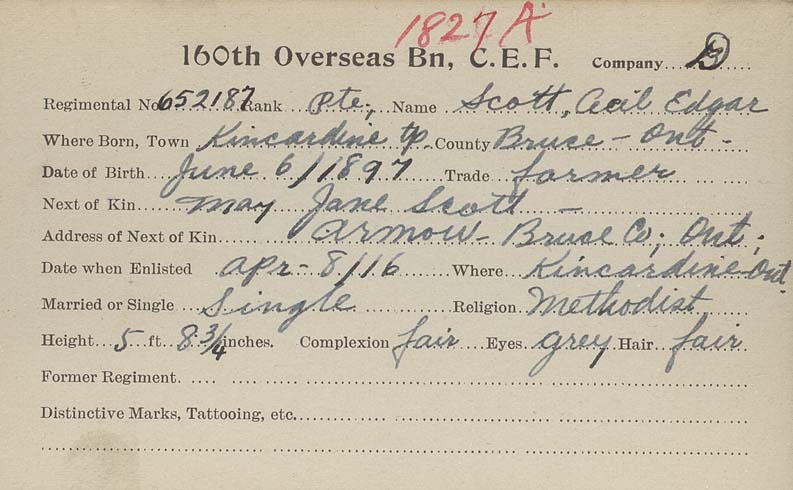 1827 A
160th Overseas Bn, C.E.F. Company
Regimental No. 652187 Rank Pte; Name Scott, Cecil Edgar
Where Born, Town Kincardine tp. County Bruce - Ont -
Date of Birth June 6/1897 Trade farmer
Next of Kin May Jane Scott -
Address of Next of Kin Armow - Bruce Co; Ont;
Date when Enlisted Apr - 8/16 Where Kincardine - Ont
Married or Single Single Religion Methodist
Height 5 ft. 8 3/4 inches. Complexion fair Eyes grey Hair fair
Former Regiment
Distinctive Marks, Tattooing, etc.